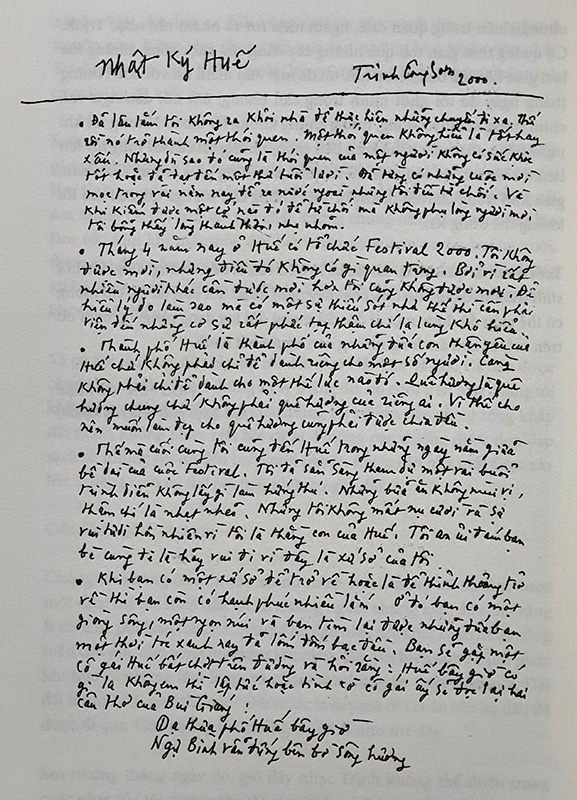 Nhật Ký Huế
Trịnh Công Sơn 2000.
• Đã lâu lắm tôi không ra khỏi nhà để thực hiện những chuyến đi xa, thế
rồi nó trở thành một thói quen. Một thói quen không hiểu là tốt hay
xấu. Nhưng dù sao đó cũng là thói quen của một người không có sức khỏe
tốt hoặc đã đạt đến một thứ tuổi lười. Đã từng có những cuộc mời
mọc trong vài năm nay để ra nước ngoài nhưng tôi đều từ chối. Và
khi kiếm được một cớ nào đó để từ chối mà không phụ lòng người mời,
tôi bỗng thấy lòng thanh thản, nhẹ nhõm.
Tháng 4 năm nay ở Huế có tổ chức Festival 2000. Tôi không
được mời, nhưng điều đó không có gì quan trọng. Bởi vì rất
nhiều người khác cần được mời hơn tôi cũng không được mời. Để
hiểu lý do làm sao mà có một sự thiếu sót như thế thì cần phải
viện đến những cớ sự rất phức tạp thậm chí lạ lùng khó hiểu.
• Thành phố Huế là thành phố của những đứa con thân yêu của
Huế chứ không phải chỉ để dành riêng cho một số người. Càng
không phải chỉ để dành cho một thế lực nào đó. Quê hương là quê
hương chung chứ không phải quê hương của riêng ai. Vì thế cho
nên muốn làm đẹp cho quê hương cũng phải được chia đều.
• Thế mà cuối cùng tôi cũng đến Huế trong những ngày nằm giữa
bề dài của cuộc Festival. Tôi đã sẵn sàng tham dự một vài buổi
trình diễn không lấy gì làm hứng thú. Những bữa ăn không mùi vị,
thậm chí là nhạt nhẽo. Nhưng tôi không mất nụ cười và sự
vui tươi hồn nhiên vì tôi là thằng con của Huế. Tôi an ủi đám bạn
bè cũng là hãy vui đi vì đây là xứ sở của tôi.
• Khi bạn có một xứ sở để trở về hoặc là để thỉnh thoảng trở
về thì bạn còn có hạnh phúc nhiều lắm. Ở đó bạn có một
giòng sông, một ngọn núi và bạn tìm lại được những đứa bạn
một thời trẻ xanh nay đã lốm đốm bạc đầu. Bạn sẽ gặp một
cô gái Huế bất chợt trên đường và hỏi rằng: Huế bây giờ có
gì lạ không em thì lập tức hoặc tình cờ cô gái ấy sẽ đọc lại hai
câu thơ của Bùi Giáng:
Dạ thưa phố Huế bây giờ
Ngự Bình vẫn đứng bên bờ sông Hương